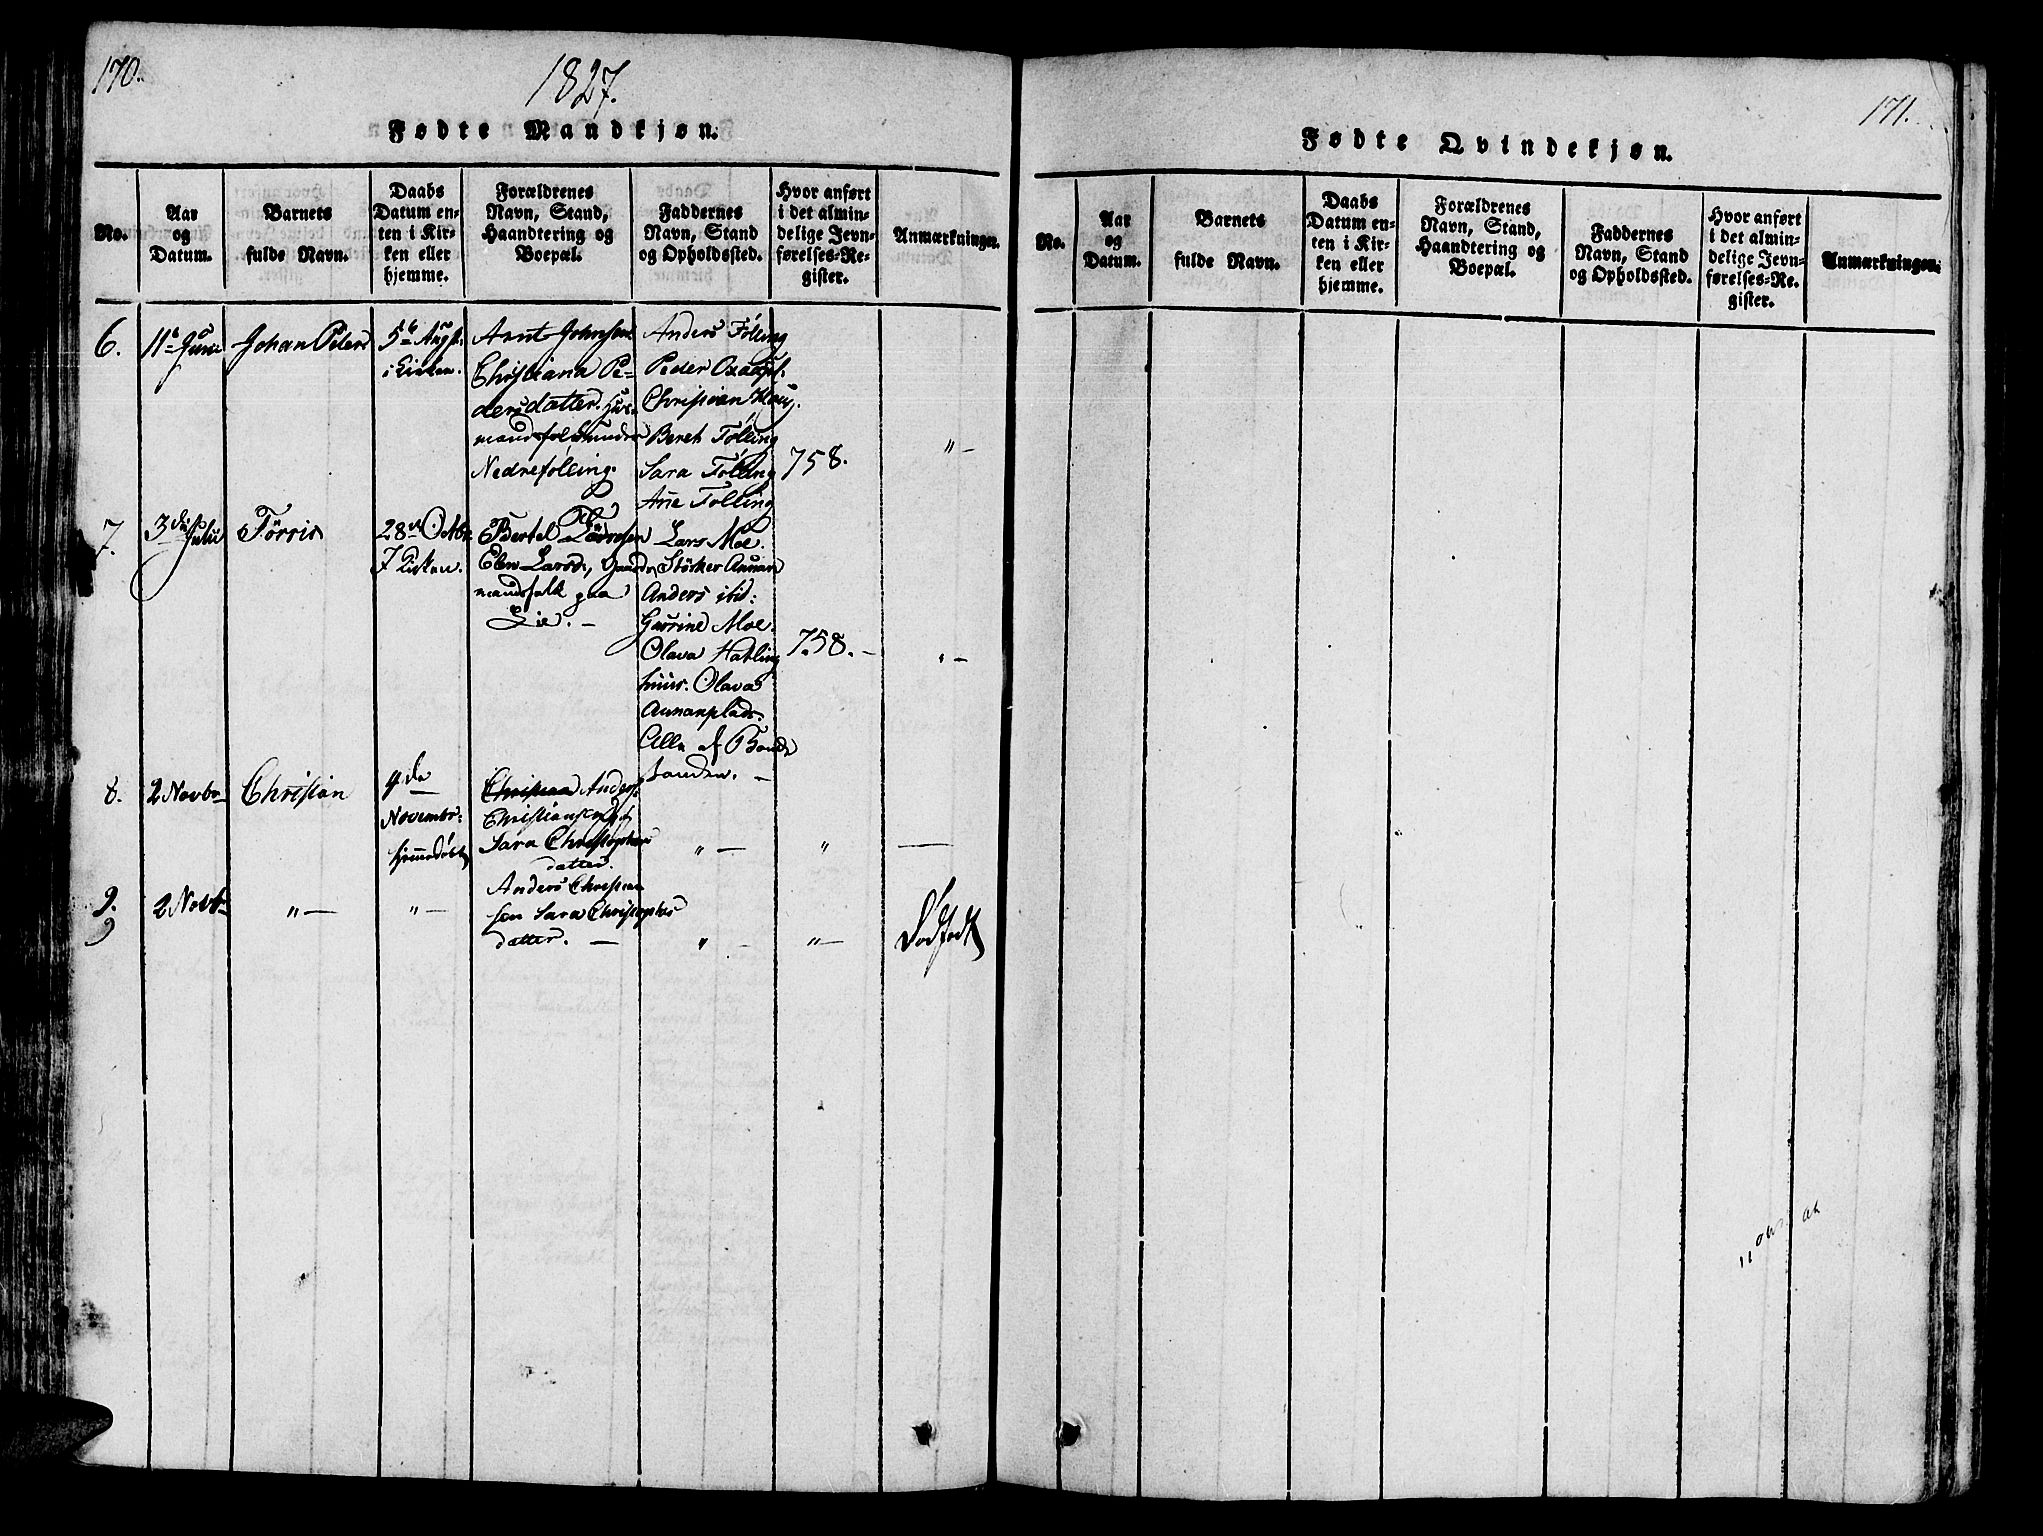 170.
1827.
Fødte Mandkjøn.
No.
Aar
og
Datum.
Barnets
fulde Navn.
Daabs
Datum en-
ten i Kir-
ken eller
hjemme.
Forældrenes
Navn, Stand,
Haandtering og
Boepæl.
Faddernes
Navn, Stand
og Opholdssted.
Hvor anført
i det almin-
delige Jevn-
førelses-Re-
gister.
Anmærkninger.
6.
11te Juni
Johan Peter
5te Augst.
i Kirken.
Arnt Johnsen
Christiana Pe-
dersdatter. Huus-
mandsfolk under
Nedrefølling.
Anders Følling
Peder
Christian
Beret Følling
Sara Følling
Ane Følling
758.
" -
7.
3die Julii
Tørris
28de Octbr.
I Kirken.
Bertel
Elen Larsd., Gaard-
mandsfolk paa
Lie. -
Lars Moe.
Størker Aunan
Anders ibid:
Gurrine Moe.
Olava Hatling
huus. Olava
Aunanplads.
Alle af Bonde
standen. -
758. -
" -
8.
2 Novbr
Christian
4de
Novembr:
hjemmedøbt
Christian Anders
Christiansen og
Sara Christophers
datter.
" -
"
-
9.
9
2 Novbr
" -
" -
Anders Christian
sen Sara Christophers
datter. -
" -
" -
Dødfødt
171.
Fødte Qvindekjøn.
No.
Aar
og
Datum.
Barnets
fulde Navn.
Daabs
Datum en-
ten i Kir-
ken eller
hjemme.
Forældrenes
Navn, Stand,
Haandtering og
Boepæl.
Faddernes
Navn, Stand
og Opholdssted.
Hvor anført
i det almin-
delige Jevn-
førelses-Re-
gister.
Anmærkninger.